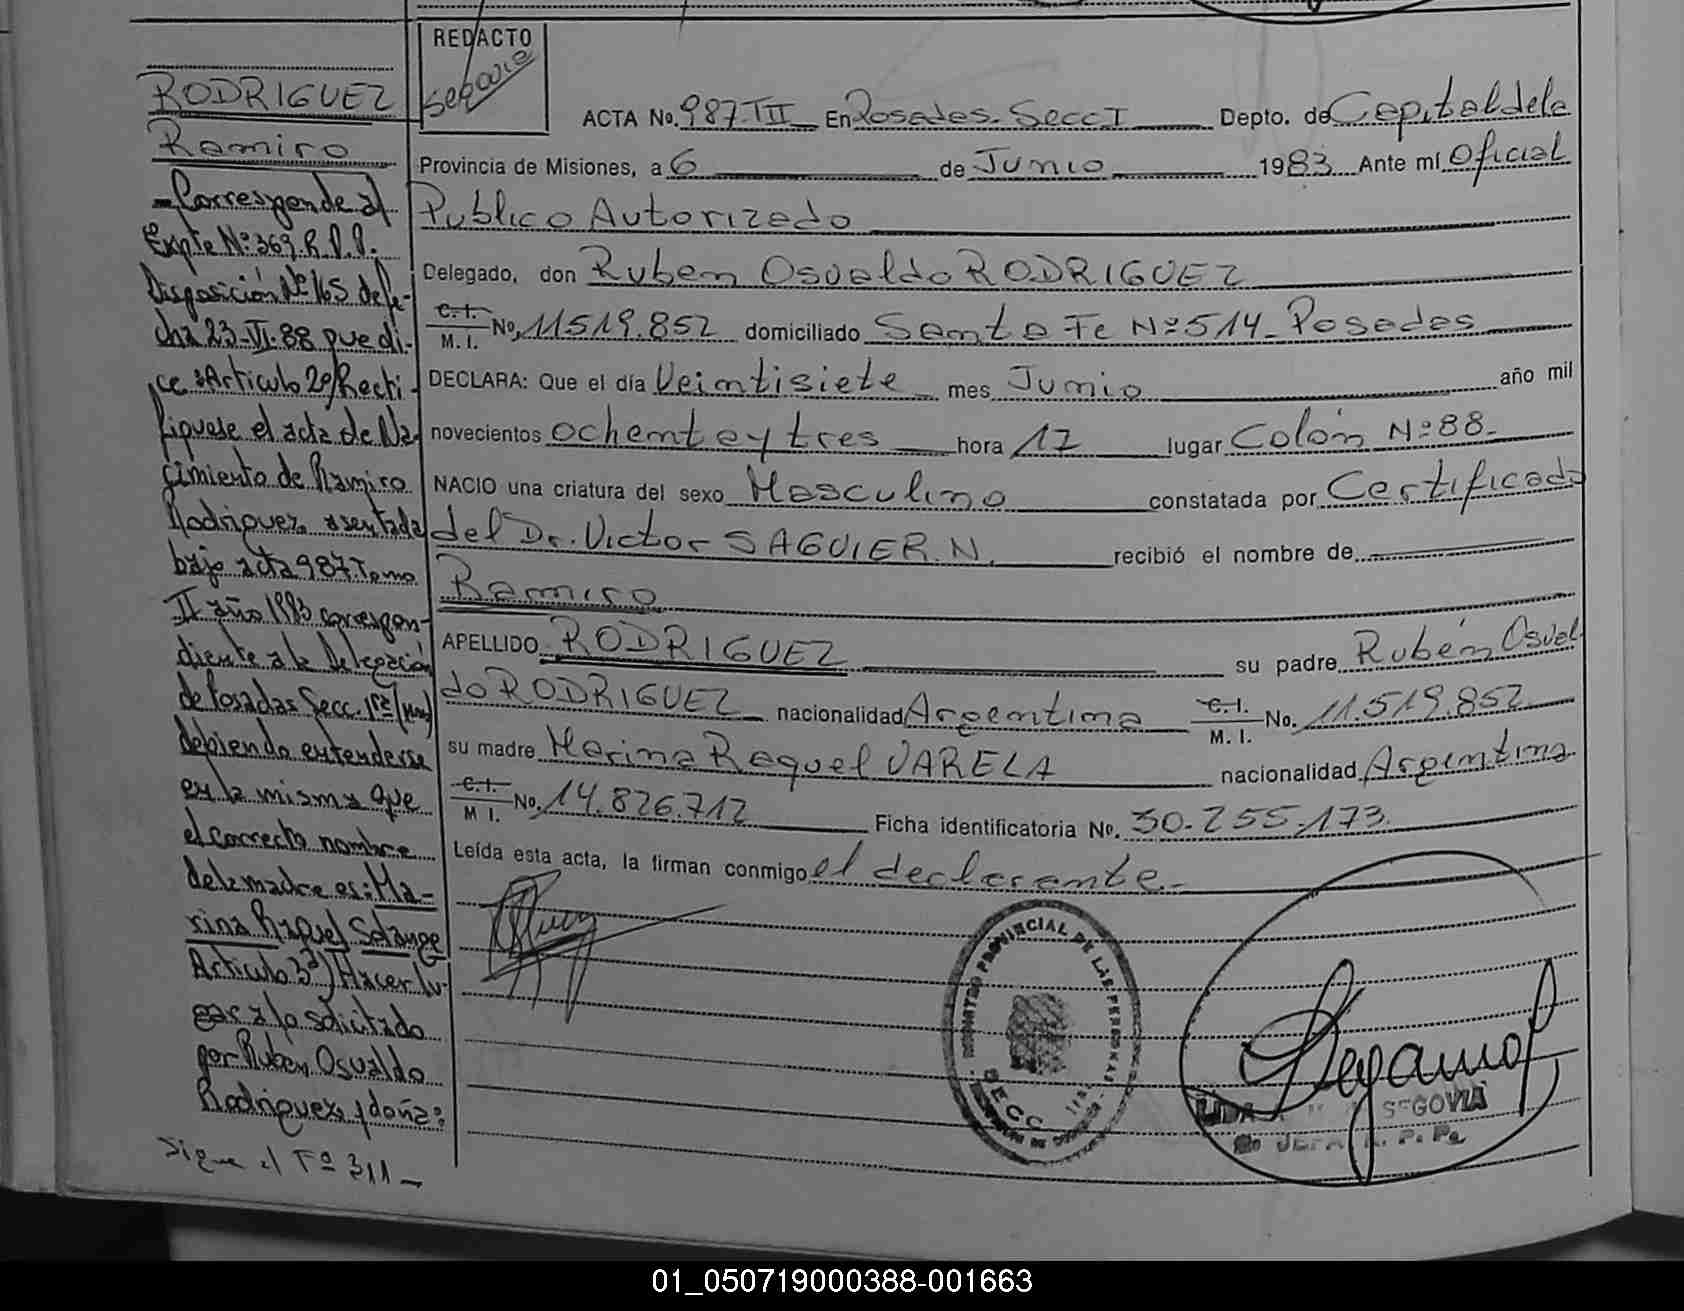 RODRIGUEZ
Ramiro
- Corresponde al
Expte Nº 369. R.P.P.
Disposición Nº 165 de fe-
cha 23-VI-88 que di-
ce: Artículo 2º/ Recti-
fíquese el acta de Na-
cimiento de Ramiro
Rodriguez, asentada
bajo acta 987. Tomo
II año 1983 correspon-
diente a la Delegación
de Posadas Secc. 1ra/(Mnes)
debiendo entenderse
en la misma que
el correcto nombre
de la madre es: Ma-
rina Raquel Solange
Artículo 3º) Hacer lu-
gar a lo solicitado
por Rubén Osvaldo
Rodriguez, y doña:
Sigue al Fº 311 -
REDACTO
Segovia
ACTA No. 987. III En Posadas. Secc I Depto. de Capital de la
Provincia de Misiones, a 6 de Junio 1983 Ante mí Oficial
Publico Autorizado
Delegado, don Ruben Osvaldo RODRIGUEZ
C. I.
M. I. No. 11.519.852 domiciliado Santa Fe Nº 514 - Posadas
DECLARA: Que el día Veintisiete mes Junio año mil
novecientos ochenta y tres hora 17 lugar Colón Nº 88.
NACIO una criatura del sexo Masculino constatada por Certificado
del Dr. Victor SAGUIER. N. recibió el nombre de
Ramiro
APELLIDO RODRIGUEZ su padre Rubén Osval
do RODRIGUEZ nacionalidad Argentina C. I. M. I. No. 11.519.852
su madre Marina Raquel VARELA nacionalidad Argentina
C. I. M I. No. 14.826.712 Ficha identificatoria No. 30.255.173.
Leída esta acta, la firman conmigo el declarante -
REGISTRO PROVINCIAL DE LAS PERSONAS
SECC. 1ra.
SEGOVIA
01_050719000388-001663